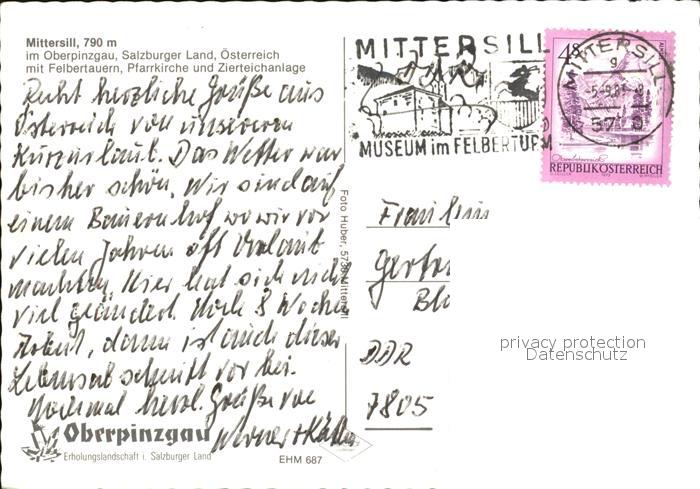 Mittersill, 790 m
im Oberpinzgau, Salzburger Land, Österreich
mit Felbertauern, Pfarrkirche und Zierteichanlage
Recht herzliche Grüße aus
Österreich von unserem
Kurzurlaub. Das Wetter war
bisher schön, wir sind auf
einem Bauernhof wo wir vor
vielen Jahren oft Urlaub
machten. Hier hat sich nicht
viel geändert. Noch 3 Wochen
Arbeit, dann ist auch dieser
Lebensabschnitt vorbei.
Nochmal herzl. Grüße von
Werner + Käthe
Oberpinzgau
Erholungslandschaft i. Salzburger Land
EHM 687
Foto Huber, 5730 Mittersill
MITTERSILL
MUSEUM im FELBERTURM
MITTERSILL
5730
REPUBLIK ÖSTERREICH
Fräulein
DDR
7805
privacy protection
Datenschutz